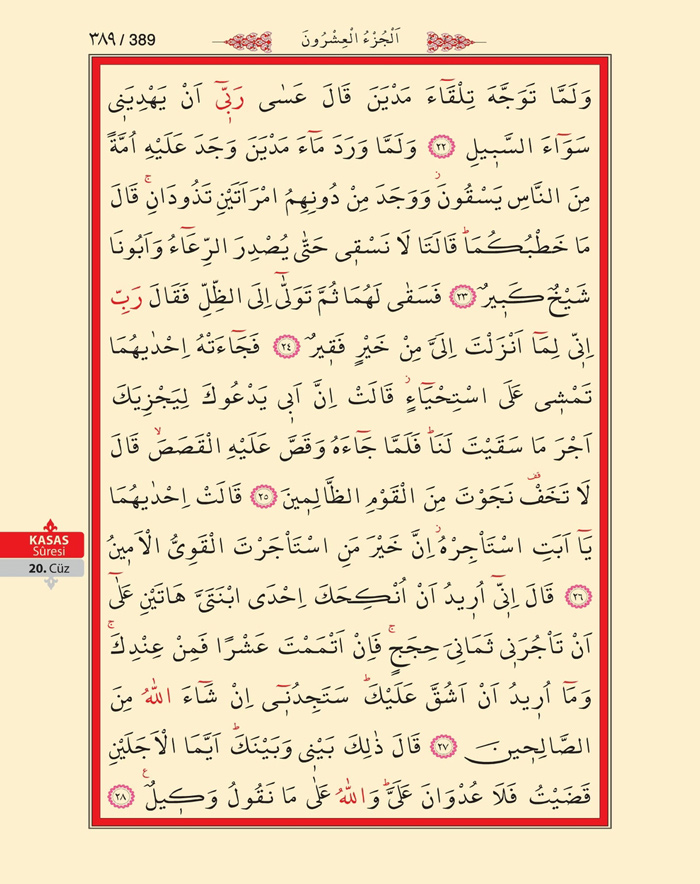 ٣٨٩ / 389
اَلْجُزْءُ الْعِشْرُونَ
وَلَمَّا تَوَجَّهَ تِلْقَٓاءَ مَدْيَنَ قَالَ عَسٰى رَبّٖٓي اَنْ يَهْدِيَنٖي
سَوَٓاءَ السَّبٖيلِ ﴿٢٢﴾ وَلَمَّا وَرَدَ مَٓاءَ مَدْيَنَ وَجَدَ عَلَيْهِ اُمَّةً
مِنَ النَّاسِ يَسْقُونَۘ وَوَجَدَ مِنْ دُونِهِمُ امْرَاَتَيْنِ تَذُودَانِۚ قَالَ
مَا خَطْبُكُمَاۜ قَالَتَا لَا نَسْقٖي حَتّٰى يُصْدِرَ الرِّعَٓاءُ وَاَبُونَا
شَيْخٌ كَبٖيرٌ ﴿٢٣﴾ فَسَقٰى لَهُمَا ثُمَّ تَوَلّٰٓى اِلَى الظِّلِّ فَقَالَ رَبِّ
اِنّٖي لِمَٓا اَنْزَلْتَ اِلَيَّ مِنْ خَيْرٍ فَقٖيرٌ ﴿٢٤﴾ فَجَٓاءَتْهُ اِحْدٰيهُمَا
تَمْشٖي عَلَى اسْتِحْيَٓاءٍۘ قَالَتْ اِنَّ اَبٖي يَدْعُوكَ لِيَجْزِيَكَ
اَجْرَ مَا سَقَيْتَ لَنَاۜ فَلَمَّا جَٓاءَهُ وَقَصَّ عَلَيْهِ الْقَصَصَۙ قَالَ
لَا تَخَفْ۠ نَجَوْتَ مِنَ الْقَوْمِ الظَّالِمٖينَ ﴿٢٥﴾ قَالَتْ اِحْدٰيهُمَا
يَٓا اَبَتِ اسْتَأْجِرْهُۘ اِنَّ خَيْرَ مَنِ اسْتَأْجَرْتَ الْقَوِيُّ الْاَمٖينُ
﴿٢٦﴾ قَالَ اِنّٖٓي اُرٖيدُ اَنْ اُنْكِحَكَ اِحْدَى ابْنَتَيَّ هَاتَيْنِ عَلٰٓى
اَنْ تَأْجُرَنٖي ثَمَانِيَ حِجَجٍۚ فَاِنْ اَتْمَمْتَ عَشْرًا فَمِنْ عِنْدِكَۚ
وَمَٓا اُرٖيدُ اَنْ اَشُقَّ عَلَيْكَۜ سَتَجِدُنٖٓي اِنْ شَٓاءَ اللّٰهُ مِنَ
الصَّالِحٖينَ ﴿٢٧﴾ قَالَ ذٰلِكَ بَيْنٖي وَبَيْنَكَۜ اَيَّمَا الْاَجَلَيْنِ
قَضَيْتُ فَلَا عُدْوَانَ عَلَيَّۜ وَاللّٰهُ عَلٰى مَا نَقُولُ وَكٖيلٌ ﴿٢٨﴾
KASAS
Sûresi
20. Cüz